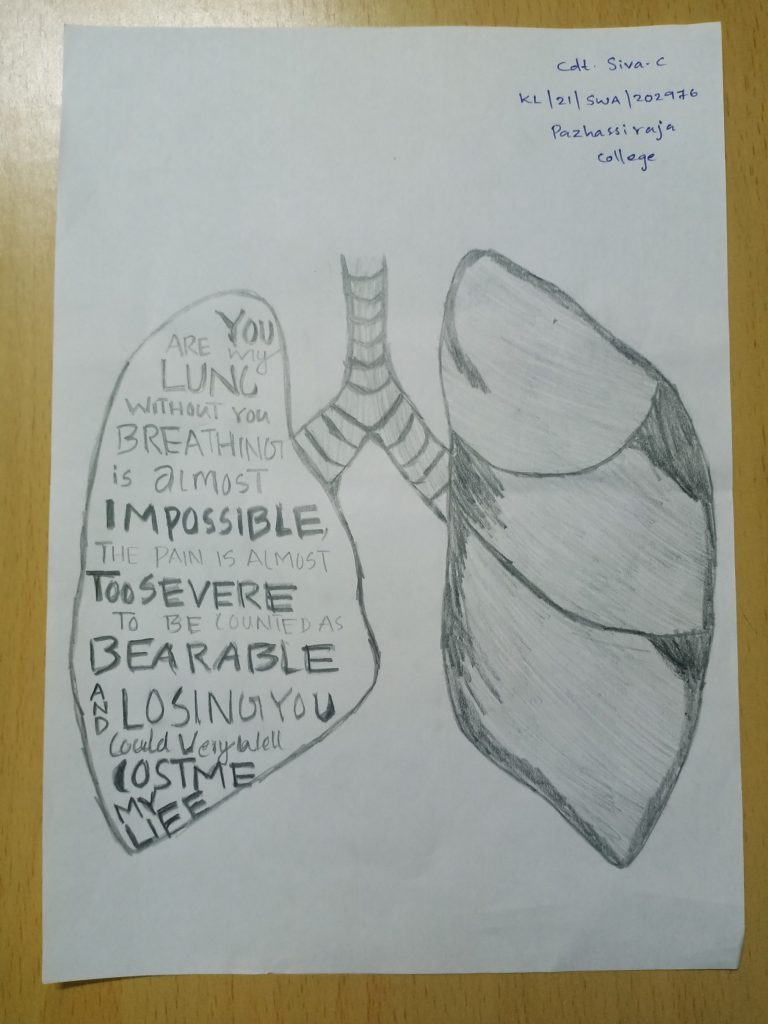 Cdt. Siva-C
KL/21/SWA/202976
Pazhassiraja
College
YOU
ARE my
LUNG
WITHOUT YOU
BREATHING
is almost
IMPOSSIBLE,
THE PAIN IS ALMOST
TOO SEVERE
TO BE COUNTED AS
BEARABLE
AND LOSING YOU
Could Very Well
COST ME
MY
LIFE